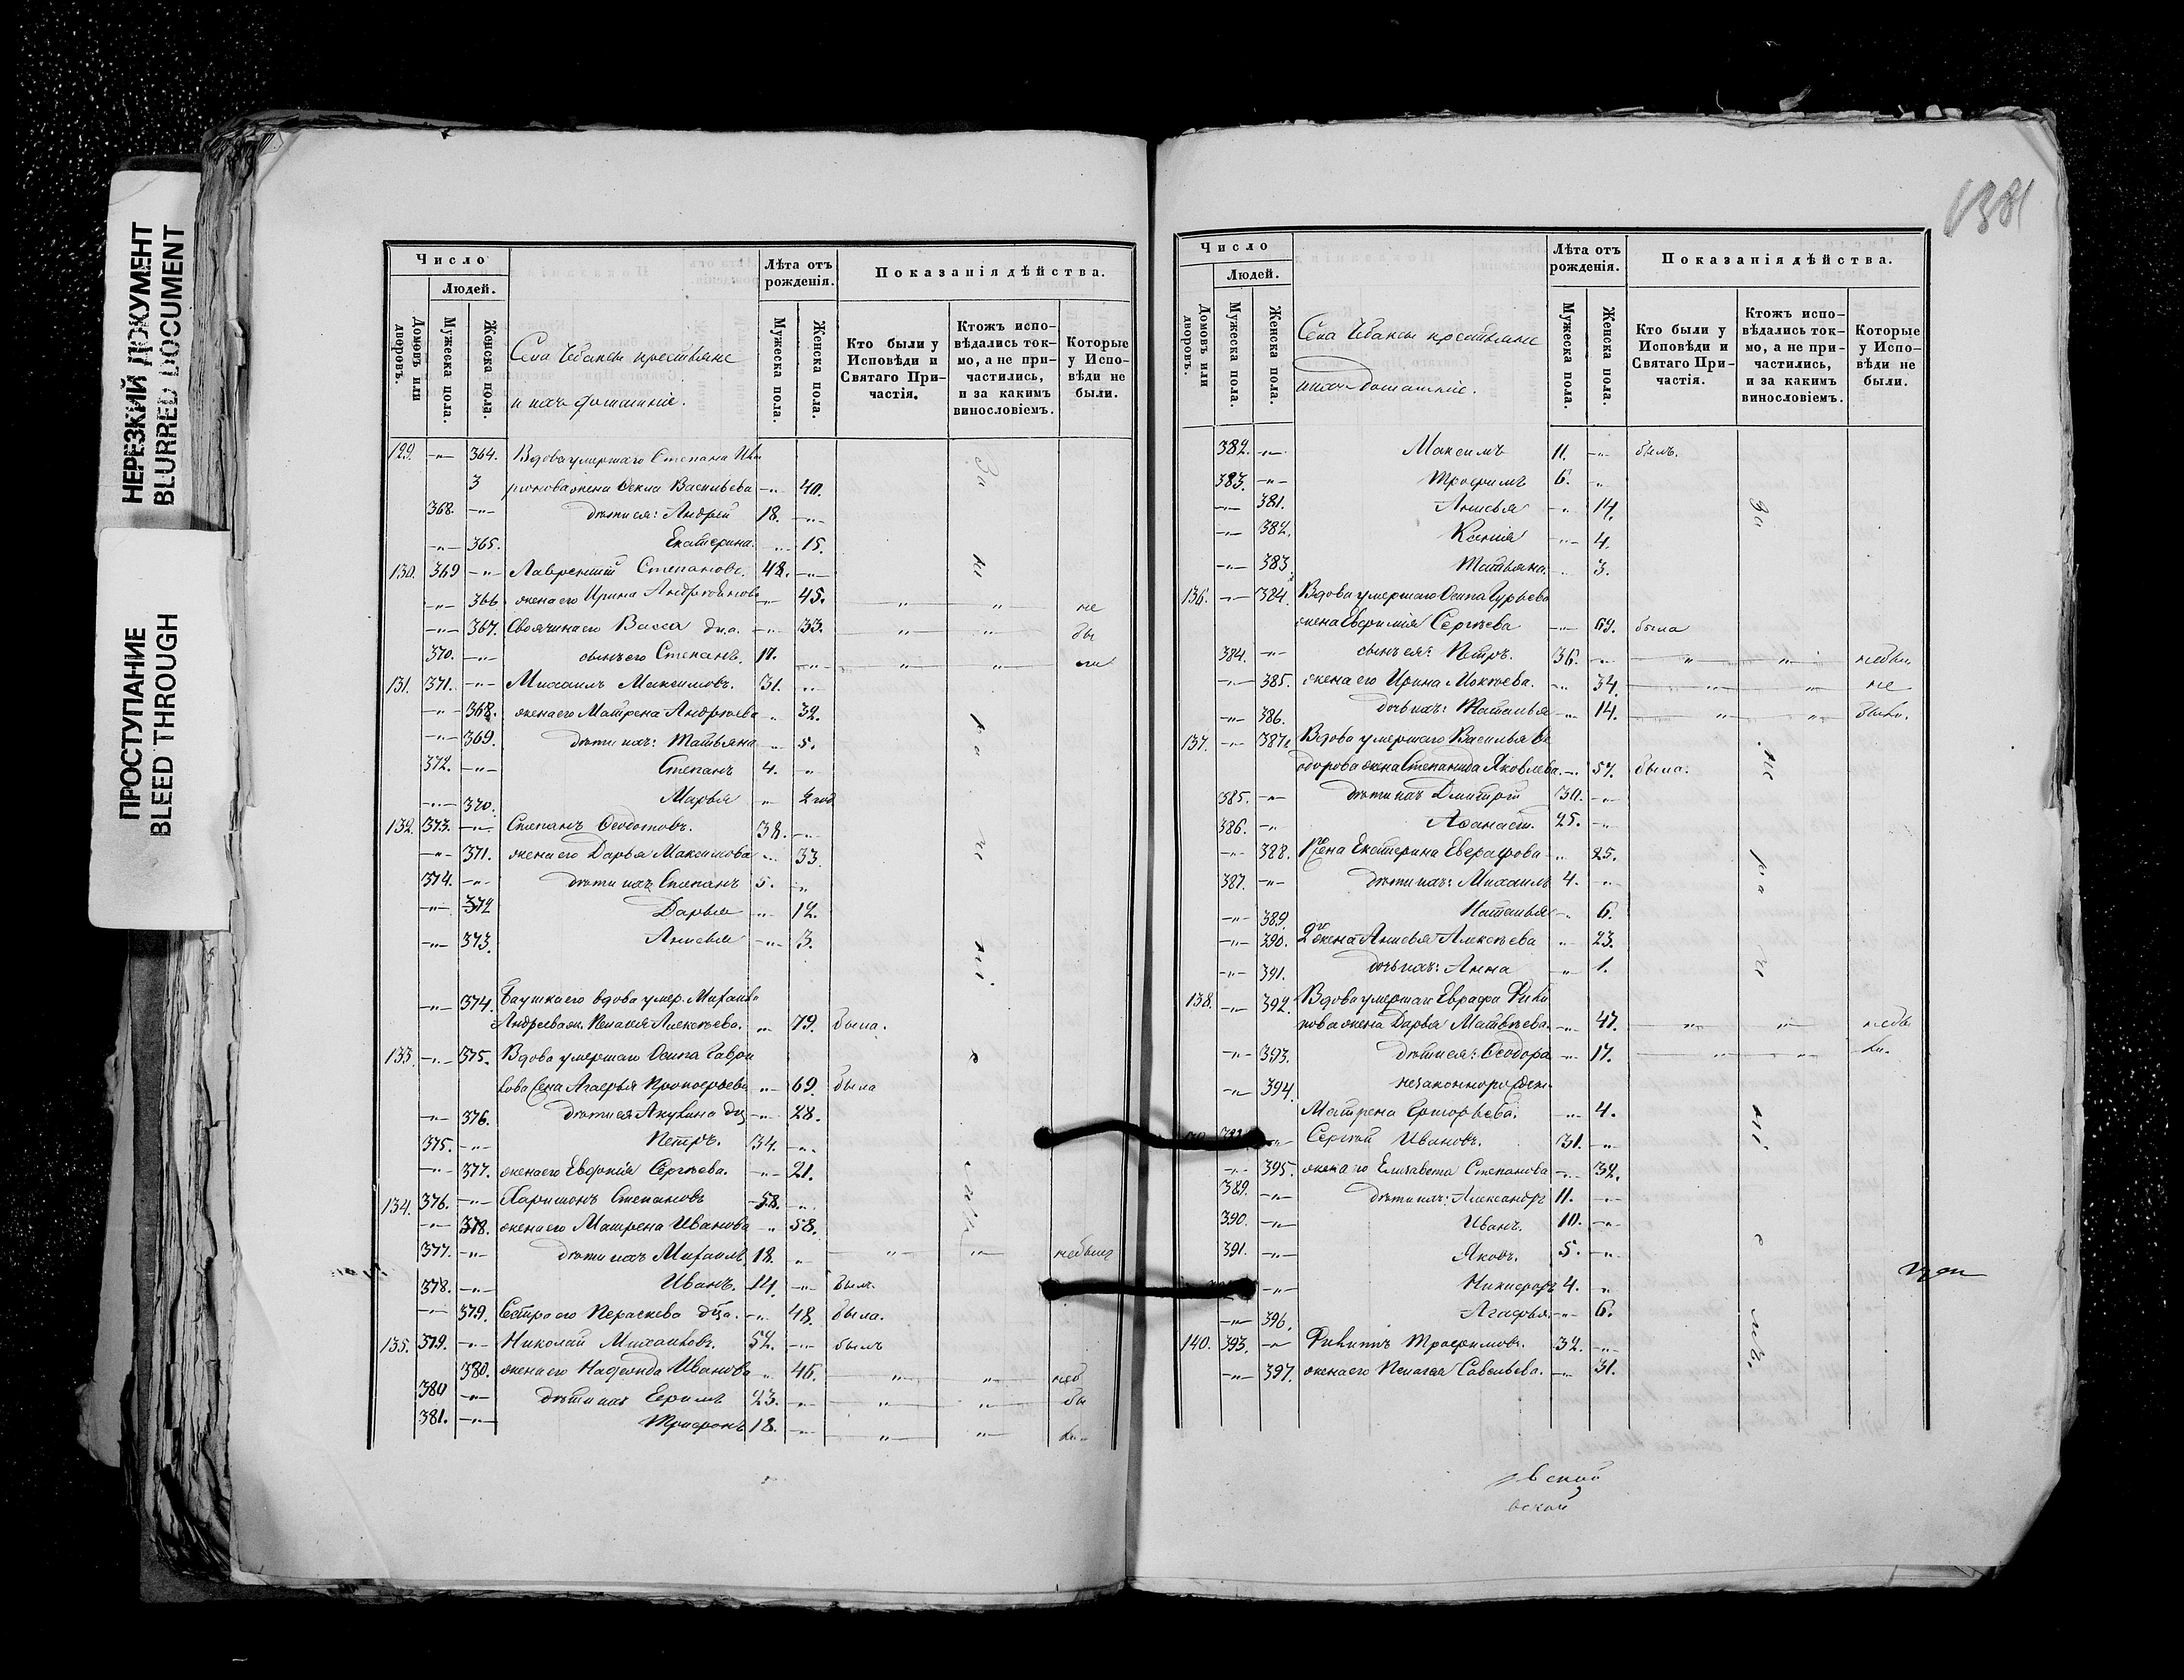 НЕРЕЗКИЙ ДОКУМЕНТ
BLURRED DOCUMENT
ПРОСТУПАНИЕ
BLEED THROUGH
Число
Людей.
Домовъ или дворовъ.
Мужеска пола.
Женска пола.
Села крестьяне
и ихъ домашніе.
Лѣта отъ рожденія.
Мужеска пола.
Женска пола.
Показанія дѣйства.
Кто были у Исповѣди и Святаго Причастія.
Ктожъ исповѣдались токмо, а не причастились, и за какимъ винословіемъ.
Которые у Исповѣди не были.
129. -"- 364. Вдова умершаго Степана
жена Васильева -"- 40.
368. -"- дѣти ея: Андрей 18. -"-
-"- 365. Екатерина. -"- 15.
130. 369 -"- Лаврентій Степановъ. 48. -"-
-"- 366. жена его Ирина -"- 45. -"- -"- не
-"- 367. Своячина его Васса дѣа. -"- 33. -"- -"- бы
370. -"- сынъ его Степанъ. 17. -"- -"- -"- ли
131. 371. -"- Михаилъ Максимовъ. 31. -"-
-"- 368. жена его Матрена Андреева -"- 32.
-"- 369. дѣти ихъ: Татьяна -"- 5.
372. -"- Степанъ 4. -"-
-"- 370. Марья -"- 2 год
132. 373. -"- Степанъ Ѳедотовъ. 38. -"-
-"- 371. жена его Дарья Максимова -"- 33.
374. -"- дѣти ихъ Степанъ 5. -"-
-"- 372 Дарья -"- 12.
-"- 373. Анисья -"- 3.
-"- 374. его вдова умер. Михаила
Андреева ж. Пелагея Алексѣева. -"- 79. была.
133. -"- 375. Вдова умершаго Осипа Гаври
лова жена Агафья Прокофьева -"- 69. была
-"- 376. дѣти ея Акулина дѣц -"- 28.
375. -"- Петръ. 34. -"-
-"- 377. жена его Евдокія Сергѣева. -"- 21.
134. 376. -"- Харитонъ Степановъ 58. -"-
-"- 378. жена его Матрена Иванова -"- 58.
377. -"- дѣти ихъ Михаилъ 18. -"- -"- -"- не были
378. -"- Иванъ. 14. -"- былъ
-"- 379. Сестра его Пераскева дѣца. -"- 48. была.
135. 379. -"- Николай Михайловъ. 52. -"- былъ
380. жена его Надежда Иванова -"- 46. -"- -"- не
380 -"- дѣти ихъ Ефимъ 23. -"- -"- -"- бы
381. -"- Трифонъ 18. -"- -"- -"- ли
За
ра
1381
Число
Людей.
Домовъ или дворовъ.
Мужеска пола.
Женска пола.
Села крестьяне
и ихъ домашніе.
Лѣта отъ рожденія.
Мужеска пола.
Женска пола.
Показанія дѣйства.
Кто были у Исповѣди и Святаго Причастія.
Ктожъ исповѣдались токмо, а не причастились, и за какимъ винословіемъ.
Которые у Исповѣди не были.
382. -"- Максимъ 11. -"- былъ.
383. -"- Трофимъ 6. -"-
-"- 381. Анисья -"- 14.
-"- 382. Ксенія -"- 4.
-"- 383. Татьяна -"- 3.
136. -"- 384. Вдова умершаго Осипа Гурьева
жена Евфимія Сергѣева -"- 69. была
384. -"- сынъ ея: Петръ. 36. -"- -"- -"- не были
-"- 385. жена его Ирина Мокѣева. -"- 34. -"- -"- не
-"- 386. дочь ихъ: Наталья -"- 14. -"- -"- были.
137. -"- 387. Вдова умершаго Василья Ѳе
дорова жена Степанида Яковлева. -"- 57. была.
385. -"- дѣти ихъ Дмитрій 30. -"-
386. -"- Аѳанасій. 25. -"-
-"- 388. 1го жена Екатерина Евграфова -"- 25.
387. -"- дѣти ихъ: Михаилъ 4. -"-
-"- 389. Наталья -"- 6.
-"- 390. 2го жена Анисья Алексѣева -"- 23.
-"- 391. дочь ихъ: Анна -"- 1.
138. -"- 392. Вдова умершаго Евграфа Фили
пова жена Дарья Матвѣева. -"- 47. -"- -"- не бы
-"- 393. дѣти ея: Ѳеодора -"- 17. -"- -"- ли.
-"- 394. незаконнорожден
Матрена Григорьева. -"- 4.
Сергѣй Ивановъ. 31. -"-
-"- 395. жена его Елизавета Степанова -"- 32.
389. -"- дѣти ихъ: Александръ 11. -"-
390. -"- Иванъ. 10. -"-
391. -"- Яковъ. 5. -"-
-"- Никифоръ 4. -"-
-"- 396. Агафья. -"- 6.
140. 393. -"- Филиппъ Трофимовъ. 32. -"-
-"- 397. жена его Пелагея Савельева. -"- 31.
За
ра
вской
вской